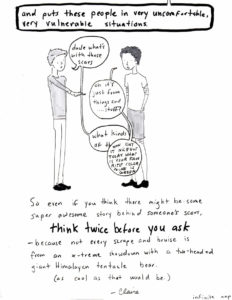 and puts these people in very uncomfortable,
very vulnerable situations.
dude what's
with those
scars
oh it's
just from
things and
...stuff?
what kinds
So even if you think there might be some
super awesome story behind someone's scars,
think twice before you ask
— because not every scrape and bruise is
from an x-treme showdown with a two-headed
giant Himalayan tentacle bear.
(as cool as that would be.)
— Claire